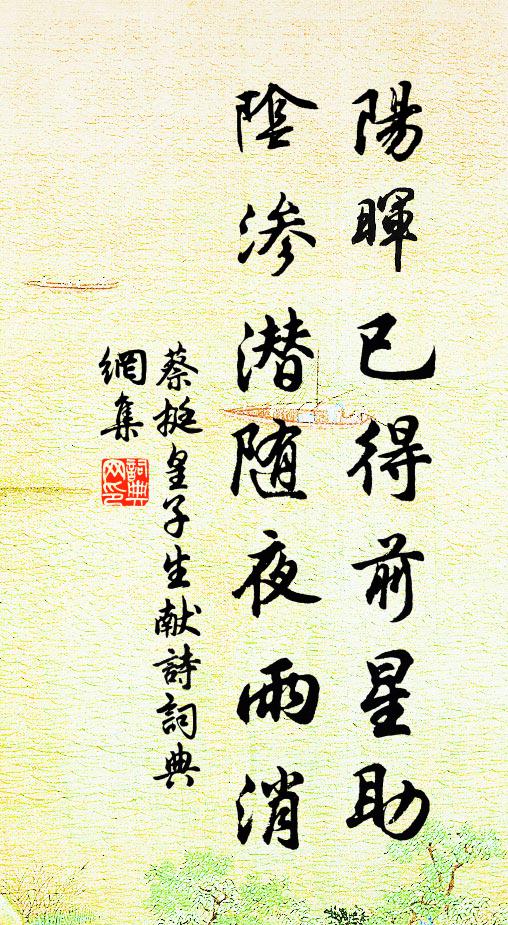 陽暉已得前星助
陰渗潜随夜雨消
蔡挺皇子生献詩詞典
網集
詞典
网印